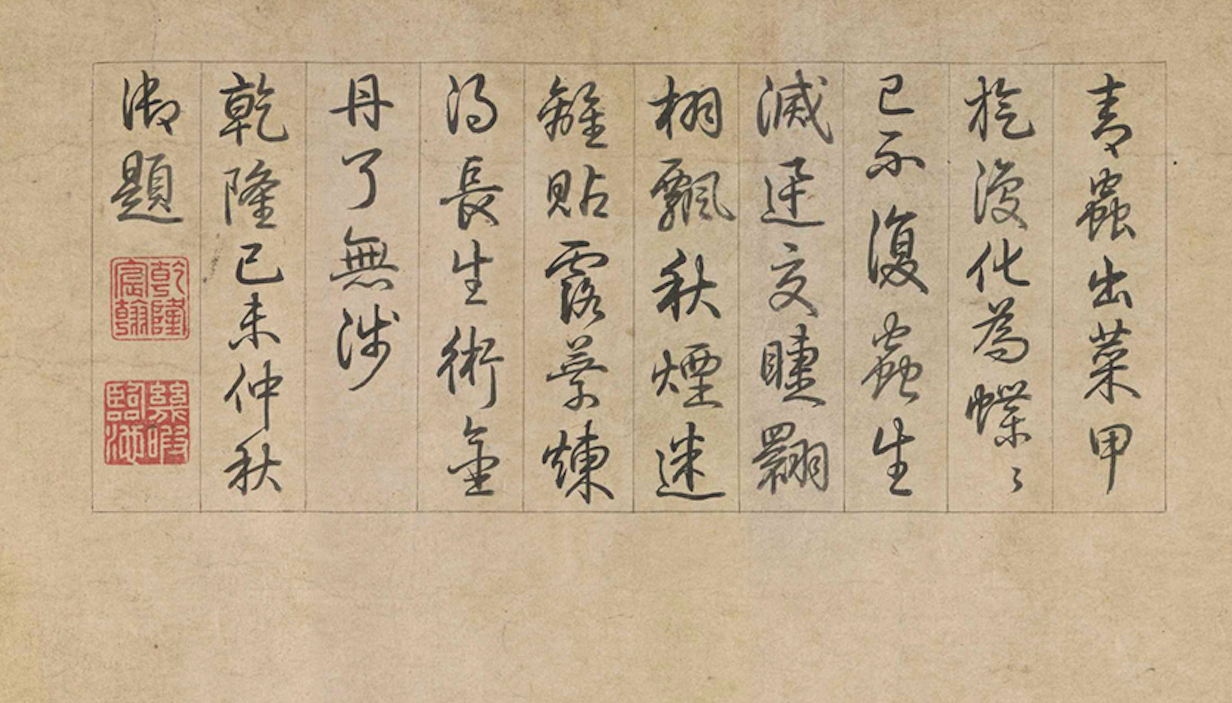 青蟲出菜甲
旋復化為蝶〻
已不復蟲生
滅迅交睫翾
栩飄秋煙迷
離貼露葉煉
得長生術金
丹了無涉
乾隆己未仲秋
御題
乾隆宸翰
幾暇臨池